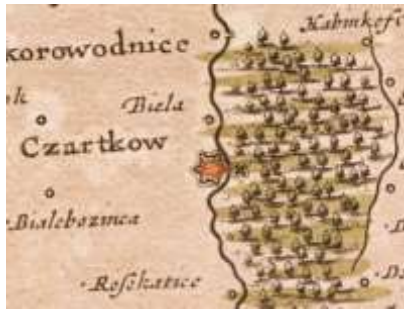 korowodnice
Kabinkosc
ok
Biela
Czartkow
Bialebozinca
Rosekatice